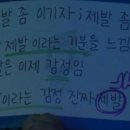 발 좀 이기자; 제발 좀
제발 이라는 기분을 느낌
은 이제 감정임
이라는 감정 진짜 제발